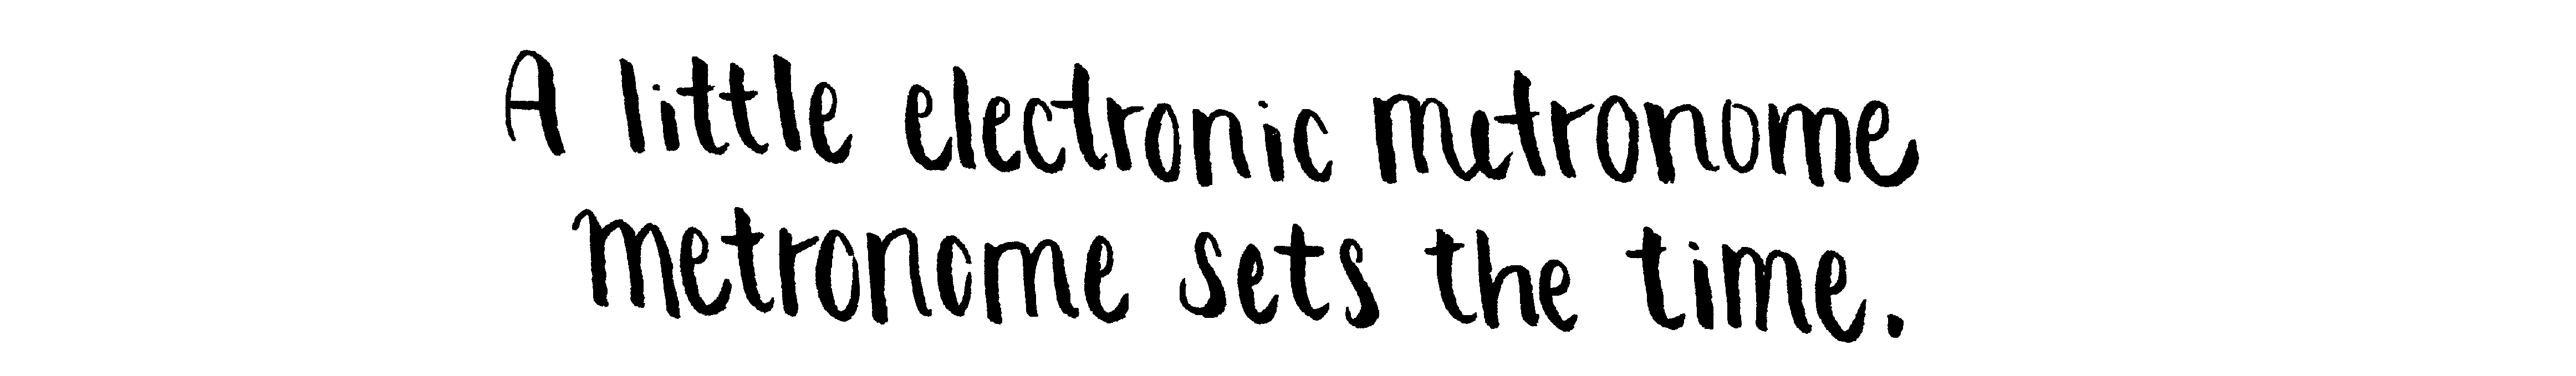 A little electronic metronome
metronome sets the time.